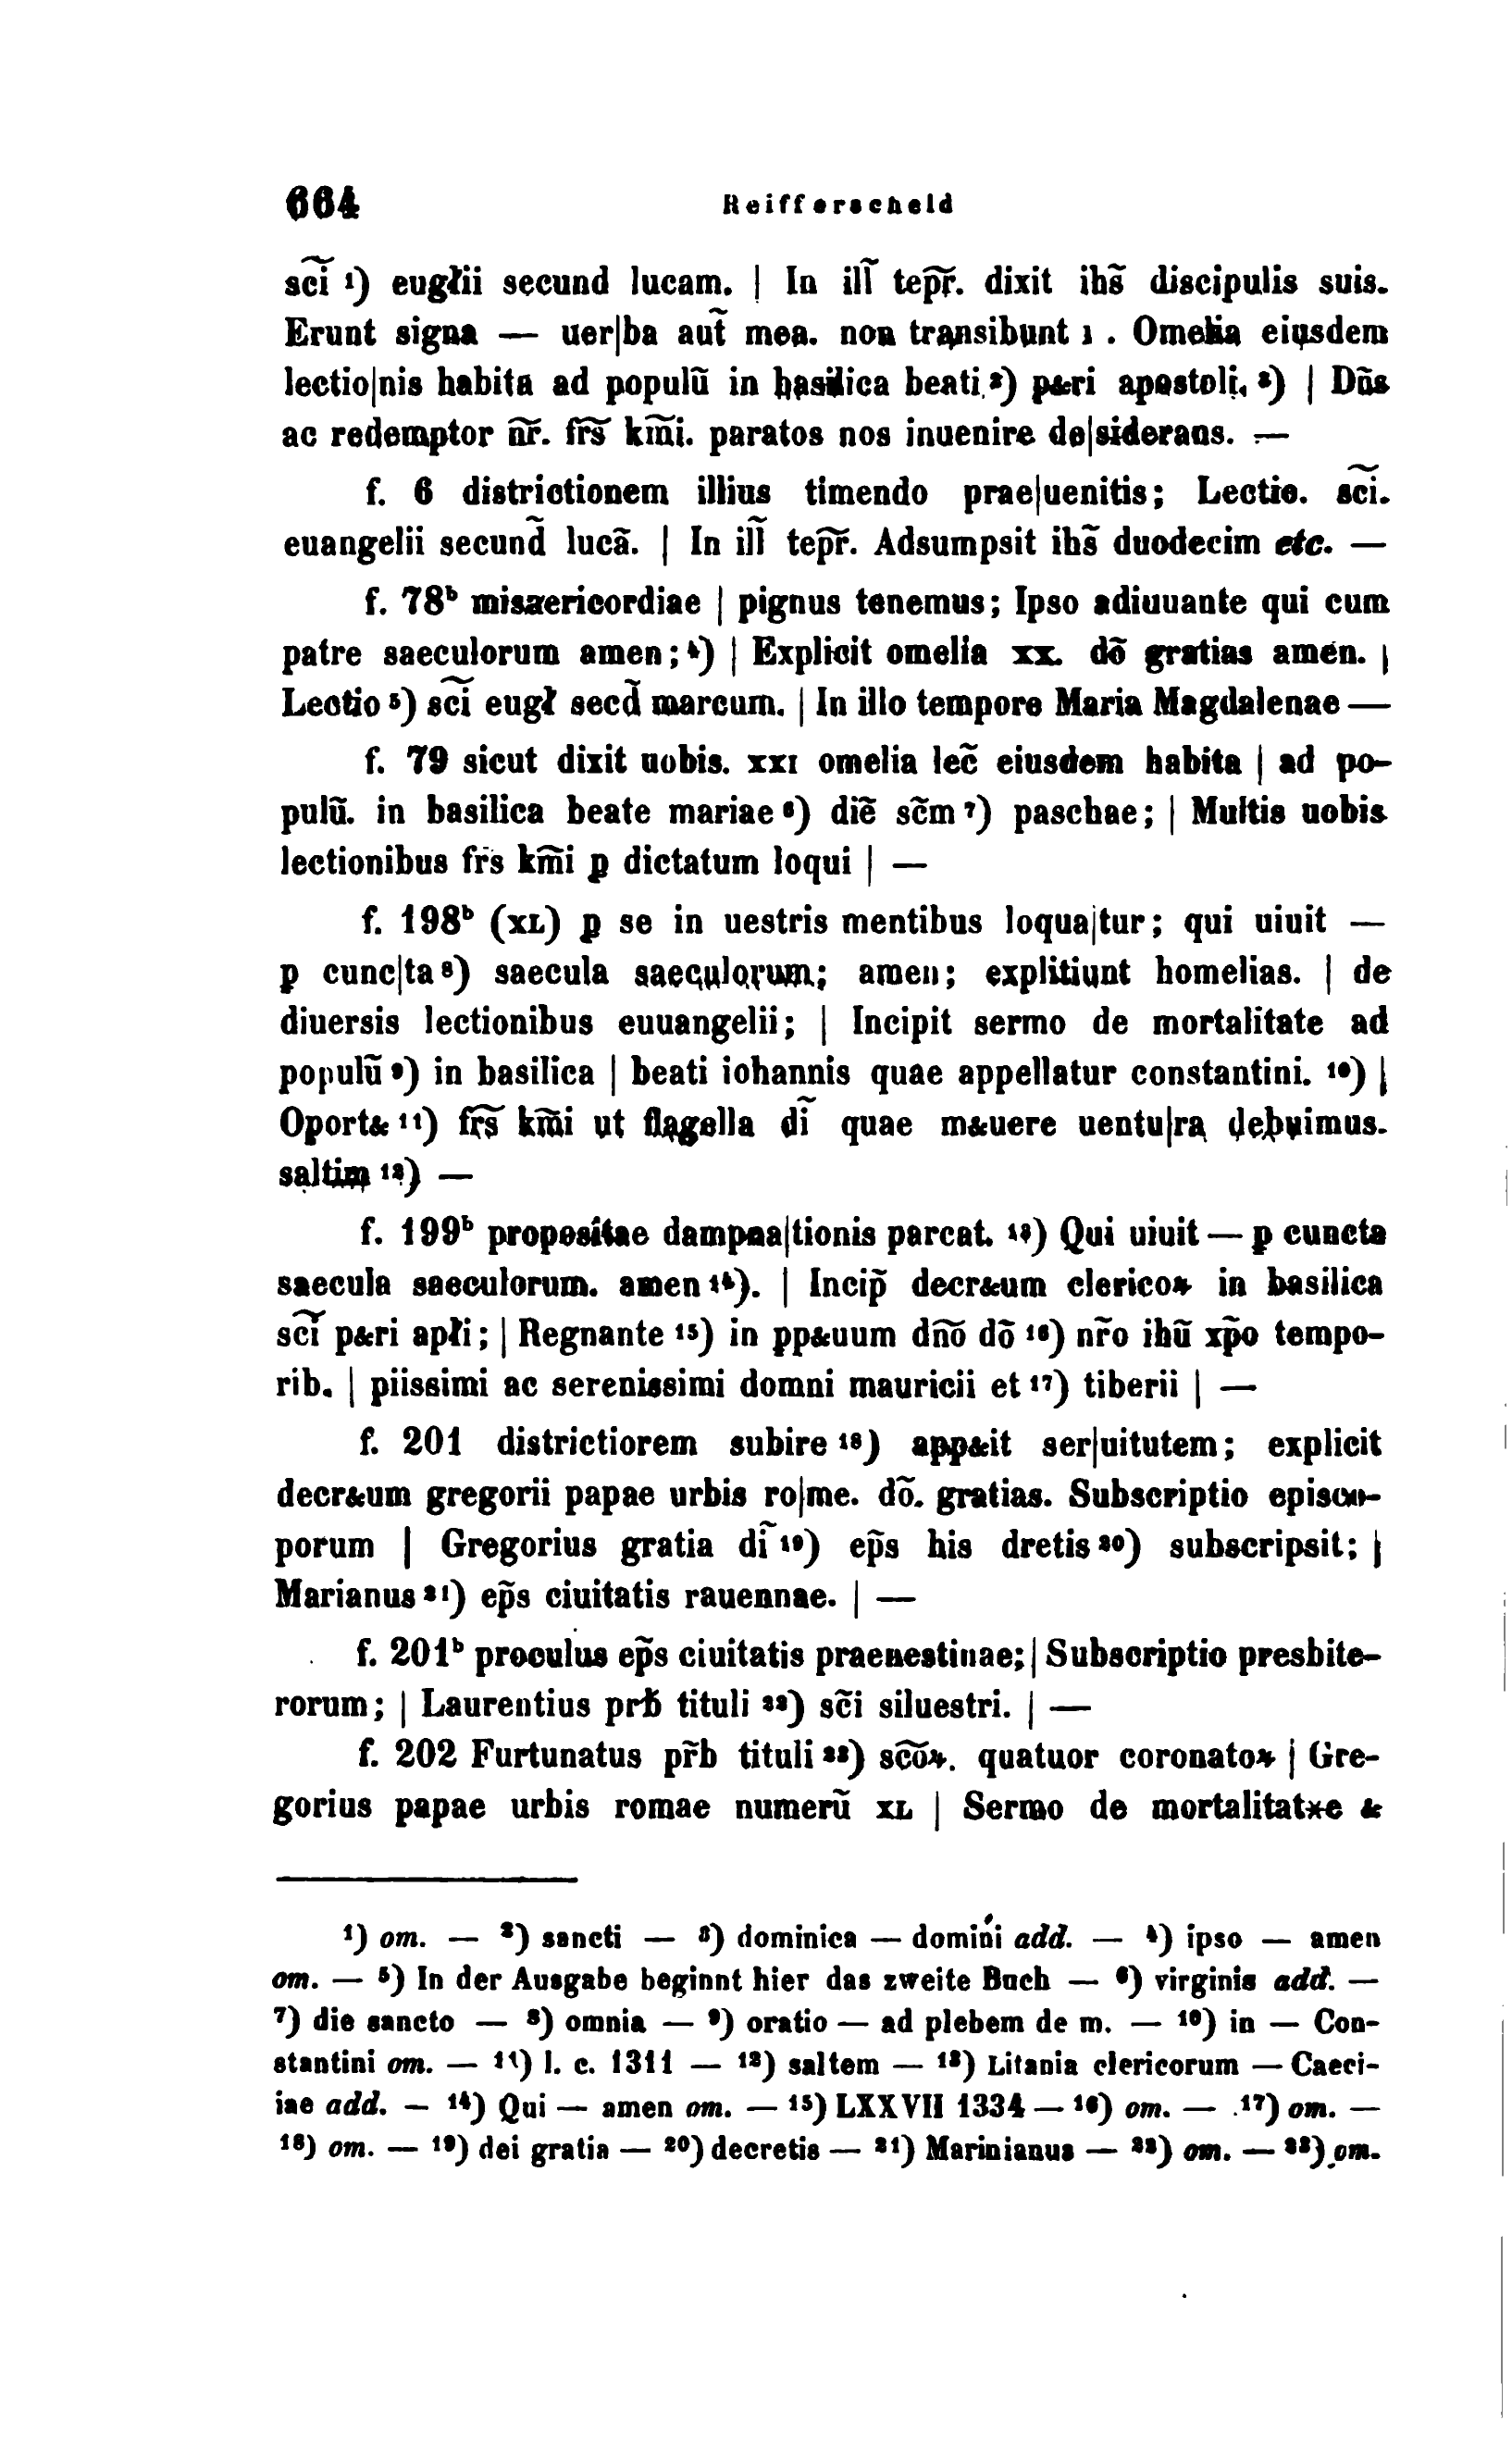 664 Reifferscheid
sc͠i ¹) eugłii secund lucam. | In ill̃ tep̃r̃. dixit ihs̃ discipulis suis.
Erunt signa — uer|ba aut̃ mea. non transibunt ı . Omelia eiusdem
lectio|nis habita ad populũ in basilica beati ²) p&ri apostoli. ³) | Dñs
ac redemptor ñr̃. fr̃s̃ km̃i. paratos nos inuenire de|siderans. —
f. 6 districtionem illius timendo prae|uenitis; Lectio. sc͠i.
euangelii secund̃ lucã. | In ill̃ tep̃r̃. Adsumpsit ihs̃ duodecim etc. —
f. 78ᵇ misxericordiae | pignus tenemus; Ipso adiuuante qui cum
patre saeculorum amen; ⁴) | Explicit omelia xx. dõ gratias amen. |
Lectio ⁵) sc͠i eugł secd̃ marcum. | In illo tempore Maria Magdalenae —
f. 79 sicut dixit uobis. xxı omelia lec̃ eiusdem habita | ad po-
pulũ. in basilica beate mariae ⁶) diẽ sc̃m ⁷) paschae; | Multis uobis
lectionibus fr̃s km̃i ꝑ dictatum loqui | —
f. 198ᵇ (xʟ) ꝑ se in uestris mentibus loqua|tur; qui uiuit —
ꝑ cunc|ta ⁸) saecula saeculorum; amen; explitiunt homelias. | de
diuersis lectionibus euuangelii; | Incipit sermo de mortalitate ad
populũ ⁹) in basilica | beati iohannis quae appellatur constantini. ¹⁰) |
Oport& ¹¹) fr̃s̃ km̃i ut flagella di͠ quae m&uere uentu|ra debuimus.
saltim ¹²) —
f. 199ᵇ propositae dampna|tionis parcat. ¹³) Qui uiuit — ꝑ cuncta
saecula saeculorum. amen ¹⁴). | Incip̃ decr&um clericoꝝ in basilica
sc͠i p&ri apłi; | Regnante ¹⁵) in pp&uum dñõ dõ ¹⁶) nr̃o ihũ xp̃o tempo-
rib. | piissimi ac serenissimi domni mauricii et ¹⁷) tiberii | —
f. 201 districtiorem subire ¹⁸) app&it ser|uitutem; explicit
decr&um gregorii papae urbis ro|me. dõ. gratias. Subscriptio episco-
porum | Gregorius gratia di͠ ¹⁹) ep̃s his dretis ²⁰) subscripsit; |
Marianus ²¹) ep̃s ciuitatis rauennae. | —
f. 201ᵇ proculus ep̃s ciuitatis praenestinae; | Subscriptio presbite-
rorum; | Laurentius prƀ tituli ²²) sc̃i siluestri. | —
f. 202 Furtunatus pr̃b tituli ²³) sc̃õꝝ. quatuor coronatoꝝ | Gre-
gorius papae urbis romae numerũ xʟ | Sermo de mortalitat*e &
¹) om. — ²) sancti — ³) dominica — domini add. — ⁴) ipso — amen
om. — ⁵) In der Ausgabe beginnt hier das zweite Buch — ⁶) virginis add. —
⁷) die sancto — ⁸) omnia — ⁹) oratio — ad plebem de m. — ¹⁰) in — Con-
stantini om. — ¹¹) l. c. 1311 — ¹²) saltem — ¹³) Litania clericorum — Caeci-
iae add. — ¹⁴) Qui — amen om. — ¹⁵) LXXVII 1334 — ¹⁶) om. — ¹⁷) om. —
¹⁸) om. — ¹⁹) dei gratia — ²⁰) decretis — ²¹) Marinianus — ²²) om. — ²³) om.